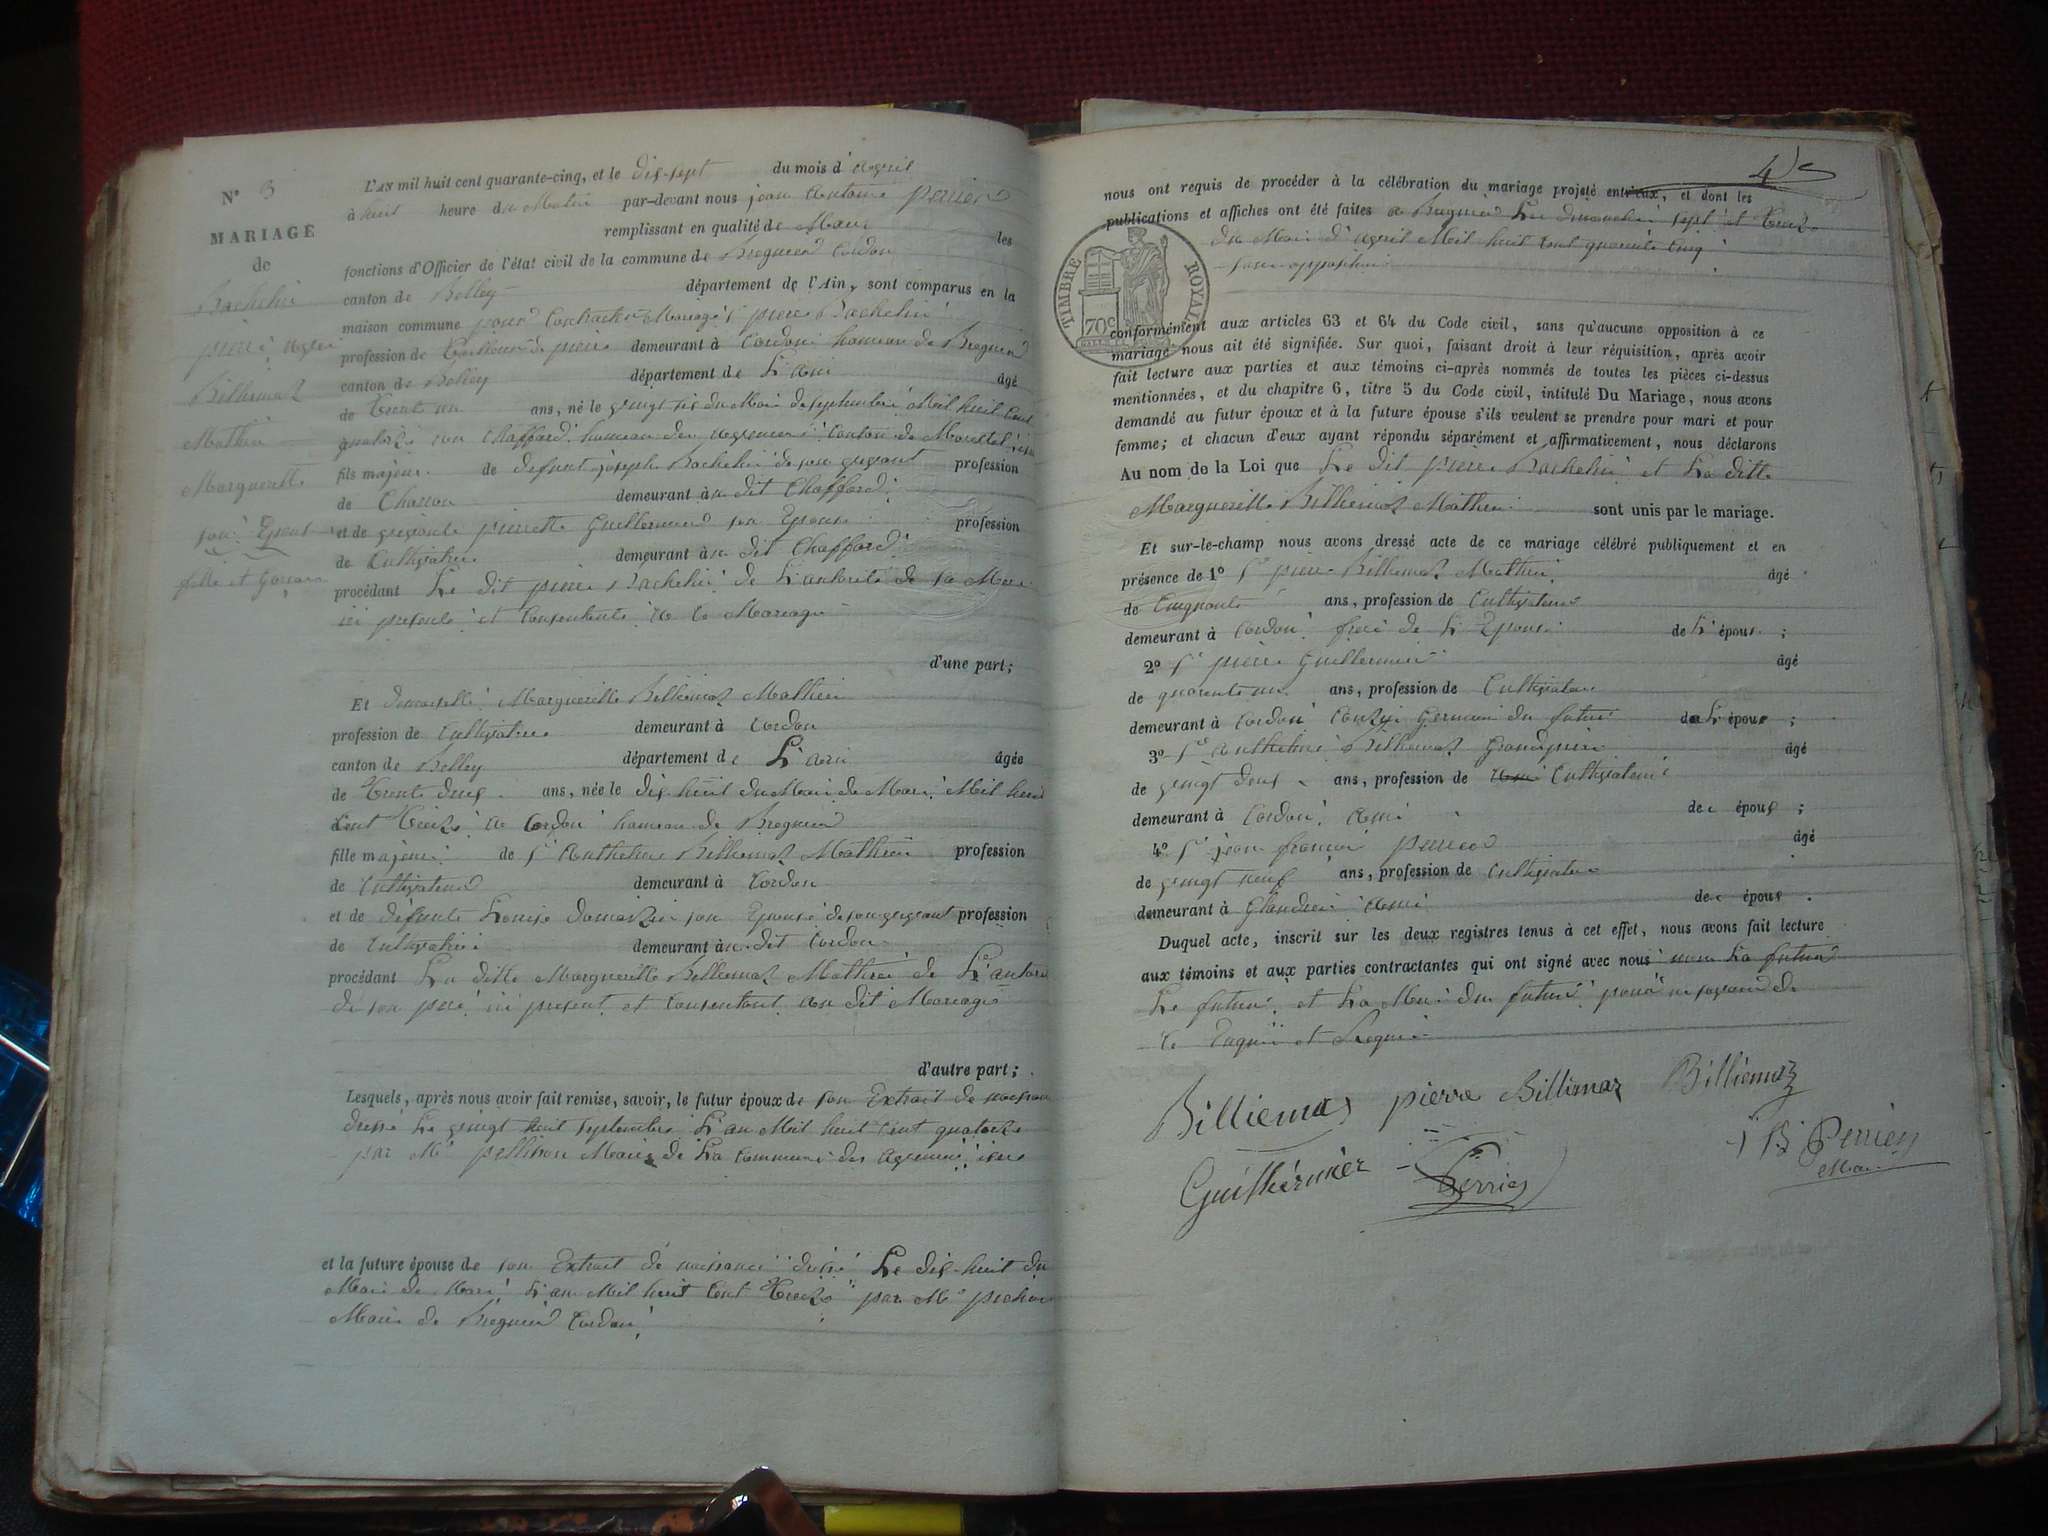 N° 3
MARIAGE
de
Bachelin
pierre avec
Billiemaz
Mathieu
Margueritte
son Epouse
fille et Garçon
L'AN mil huit cent quarante-cinq, et le dix-sept du mois d'avril
à huit heure du Matin par-devant nous jean Antoine perrier
remplissant en qualité de Maire les
fonctions d'Officier de l'état civil de la commune de Bregnier Cordon
canton de Belley département de l'Ain, sont comparus en la
maison commune pour Contracter Mariage Sr pierre Bachelin
profession de Tailleur de pierre demeurant à Cordon hameau de Bregnier
canton de Belley département de L'ain âgé
de Trente un ans, né le vingt six du Mois de septembre Mil huit Cent
quatorze au Chaffard hameau des avenieres Canton de Morestel isere
fils majeur de defunt joseph Bachelin de son vivant profession
de Charron demeurant au dit Chaffard
et de vivante pierrette Guillermier son Epouse profession
de Cultivatrice demeurant au dit Chaffard
procédant Le dit pierre Bachelin de L'autorité de sa Mere
ici presente et Consentente à ce Mariage
d'une part;
Et demoiselle Marguerille Billiemaz Mathieu
profession de Cultivatrice demeurant à Cordon
canton de Belley département de L'ain âgée
de Trente deux ans, née le dix huit du Mois de Mars Mil huit
Cent Treize à Cordon hameau de Bregnier
fille majeure de Sr Anthelme Billiemaz Mathieu profession
de Cultivateur demeurant à Cordon
et de défunte Louise son Epouse de son vivant profession
de Cultivatrice demeurant au dit Cordon
procédant La ditte Marguerille Billiemaz Mathieu de L'autorité
de son pere ici present et Consentant au dit Mariage
d'autre part;
Lesquels, après nous avoir fait remise, savoir, le futur époux de son Extrait de naissance
dressé Le vingt huit septembre L'an Mil huit Cent quatorze
par Mr pellisson Maire de La Commune des avenieres isere
et la future épouse de son Extrait de naissance dressé Le dix-huit du
Mois de Mars L'an Mil huit Cent Treize par Mr
Maire de Bregnier Cordon
4
nous ont requis de procéder à la célébration du mariage projeté entr'eux, et dont les
publications et affiches ont été faites à Bregnier Les dimanches sept et Treize
du Mois d'avril Mil huit Cent quarante Cinq
sans opposition
TIMBRE ROYAL
70c
conformément aux articles 63 et 64 du Code civil, sans qu'aucune opposition à ce
mariage nous ait été signifiée. Sur quoi, faisant droit à leur réquisition, après avoir
fait lecture aux parties et aux témoins ci-après nommés de toutes les pièces ci-dessus
mentionnées, et du chapitre 6, titre 5 du Code civil, intitulé Du Mariage, nous avons
demandé au futur époux et à la future épouse s'ils veulent se prendre pour mari et pour
femme; et chacun d'eux ayant répondu séparément et affirmativement, nous déclarons
Au nom de la Loi que Le dit pierre Bachelin et La ditte
Marguerille Billiemaz Mathieu sont unis par le mariage.
Et sur-le-champ nous avons dressé acte de ce mariage célébré publiquement et en
présence de 1° Sr pierre Billiemaz Mathieu âgé
de Cinquante ans, profession de Cultivateur
demeurant à Cordon frere de L'Epouse de L'épouse ;
2° Sr pierre Guillermier âgé
de quarante un ans, profession de Cultivateur
demeurant à Cordon Germain du futur de L'époux ;
3° Sr Anthelme Billiemaz Grandpierre âgé
de vingt deux ans, profession de Cultivateur
demeurant à Cordon Ami de époux ;
4° Sr jean francois perrier âgé
de vingt neuf ans, profession de Cultivateur
demeurant à Glandieu Ami de époux .
Duquel acte, inscrit sur les deux registres tenus à cet effet, nous avons fait lecture
aux témoins et aux parties contractantes qui ont signé avec nous non La future
Le futur et La Mere du futur pour
ce Enquis et Requis
Billiemaz pierre Billimaz Billiemaz
Guilhérmier Perrier Perrier
Maire